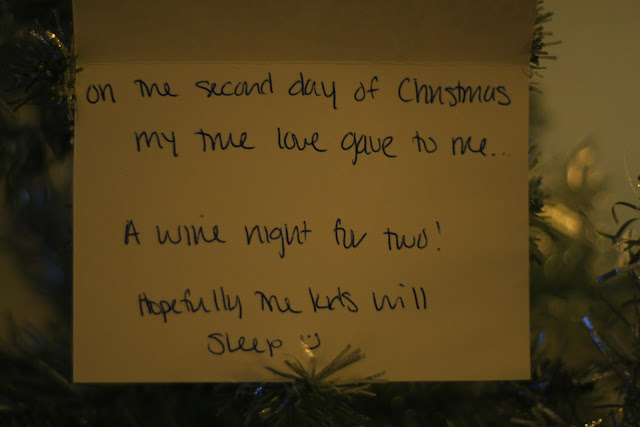 on the second day of Christmas
my true love gave to me...
A wine night for two!
Hopefully the kids will
sleep :)